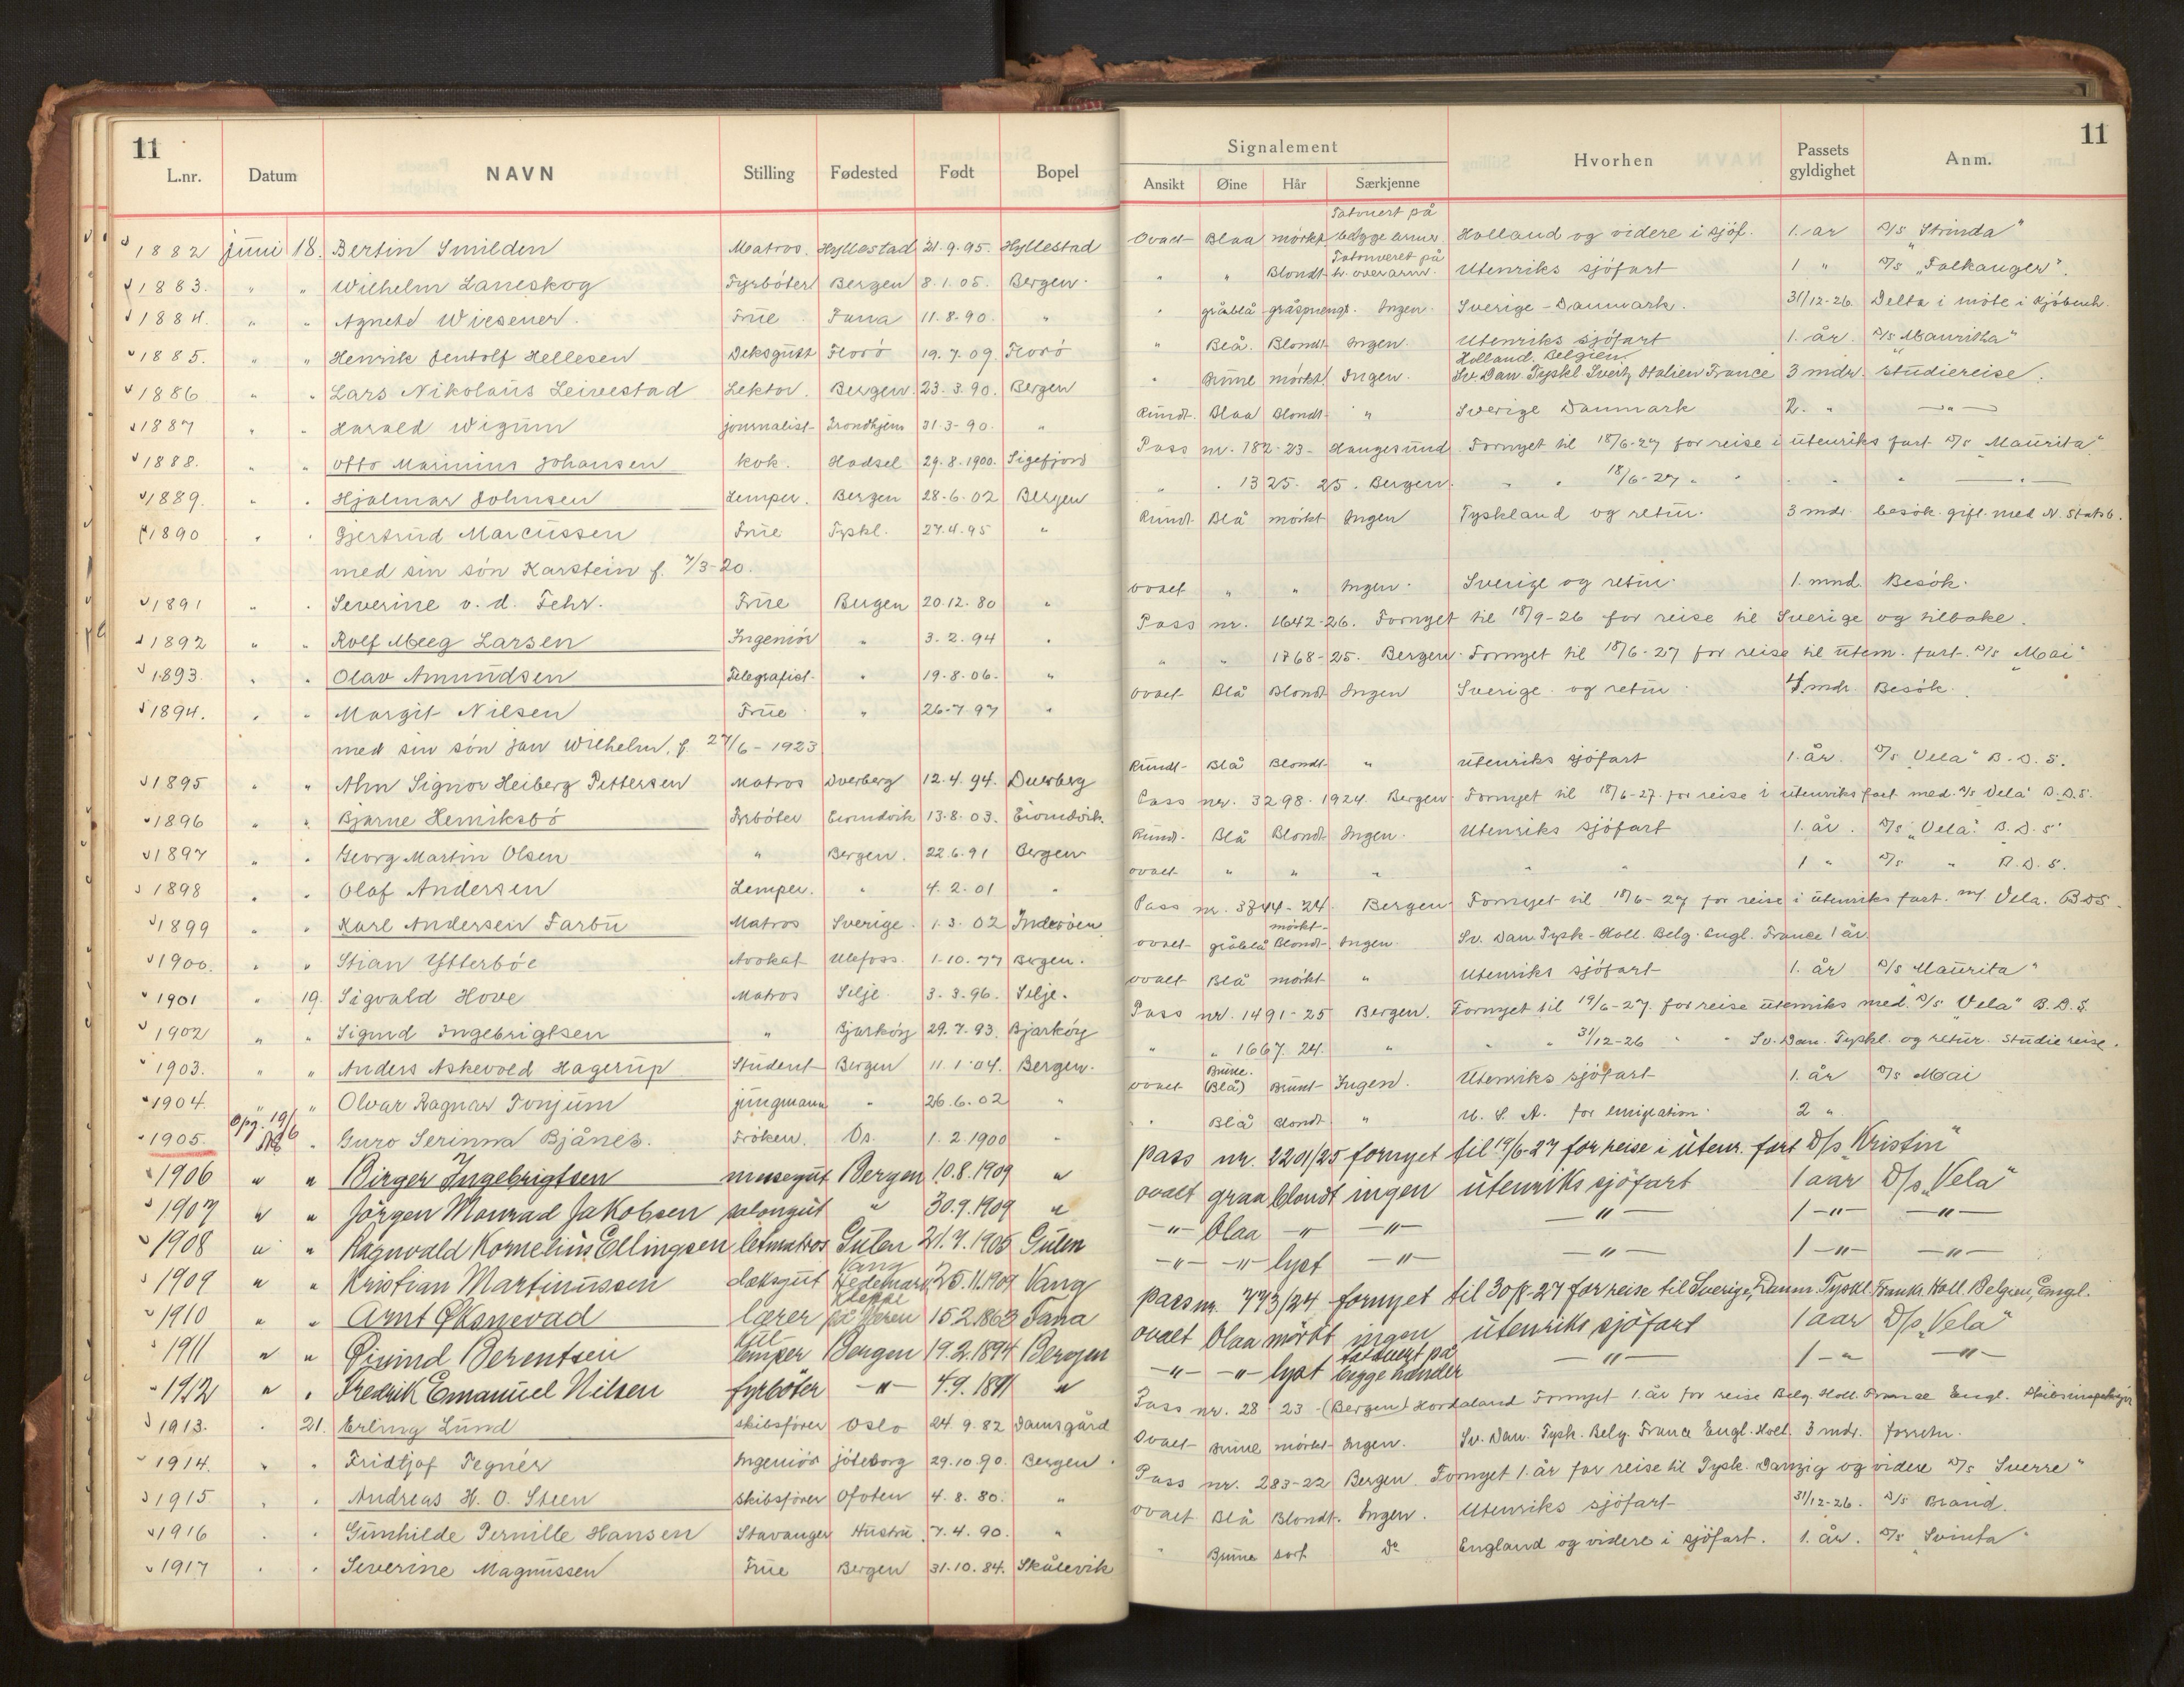 11
L.nr. Datum NAVN Stilling Fødested Født Bopel
1882 juni 18. Bertin Smilden Matros. Hyllestad 21.9.95. Hyllestad
1883. " " Wilhelm Laneskog Fyrböter Bergen 8.1.05. Bergen.
1884. " " Agnete Wiesener. Frue Fana 11.8.90. "
1885. " " Henrik Hellesen Deksgutt Florö 19.7.09. Florö
1886 " " Lars Nikolaus Leivestad Lektor. Bergen. 23.3.90. Bergen
1887 " " Harald Wigum journalist Trondhjem 31.3-90. "
1888. " " Otto Marinius Johansen kok. Hadsel 29.8.1900. Sigefjord
1889. " " Hjalmar Johnsen Lemper. Bergen 28-6.02 Bergen
1890 " " Gjertrud Marcussen Frue Tyskl. 27.4.95 "
med sin sön Karstein f. 7/3-20.
1891 " " Severine v. d. Fehr. Frue Bergen 20.12.80 "
1892 " " Rolf Meeg Larsen Ingeniör " 3.2.94 "
1893. " " Olav Amundsen Telegrafist. " 19.8.06. "
1894. " " Margit Nilsen Frue " 26-7 97 "
med sin sön jan Wilhelm. f. 27/6-1923
1895 " " Alm Signor Heiberg Pettersen Matros Dverberg 12.4.94. Dverberg
1896 " " Bjarne Henriksbö Fyrböter Eivindvik 13.8.03. Eivindvik.
1897 " " Georg Martin Olsen " Bergen. 22.6.91 Bergen
1898 " " Olaf Andersen Lemper. " 4.2.01 "
1899 " " Karl Andersen Farbu Matros Sverige. 1.3.02 Inderöen
1900. " " Stian Ytterböe Avokat Ulefoss. 1-10.77 Bergen.
1901 " 19. Sigvald Hove Matros Selje 3.3.96. Selje.
1902 " " Sigurd Ingebrigtsen " Bjarköy 29.7.93. Bjarköy
1903. " " Anders Askevold Hagerup Student Bergen 11.1.04. Bergen.
1904. " " Olvar Ragnar Tonjum jungmann " 26.6.02 "
Opg. 19/6
1905. " Guro Serinna Bjånes. Fröken. Os. 1.2.1900 "
1906 " " Birger Ingebrigtsen messegut Bergen 10.8.1909 "
1907 " " Jörgen Monrad Jakobsen salongut " 30.9.1909 "
1908 " " Ragnvald Kornelius Ellingsen letmatros Gulen 21.7.1905 Gulen
1909 " " Kristian Martinussen dæksgut Vang Hedemark 25.11.1909 Vang
1910 " " Arnt Øksnevad lærer Kleppe på Jæren 15.2.1863 Fana
1911 " " Øivind Berentsen kullemper Bergen 19.2.1894 Bergen
1912 " " Fredrik Emanuel Nilsen fyrböter -"- 4.9.1891 "
1913. " 21. Erling Lund skibsförer Oslo 24.9.82 Damsgård
1914. " " Fridtjof Tegnér Ingeniör jöteborg 29.10.90. Bergen.
1915 " " Andreas H. O. Steen Skibsförer Ofoten 4.8.80. "
1916 " " Gunhilde Pernille Hansen Stavanger Hustru 7.4.90. "
1917 " " Severine Magnussen Frue Bergen 31.10.84. Skålevik
11
Signalement
Ansikt Øine Hår Særkjenne Hvorhen Passets gyldighet Anm.
Ovalt Blaa mörkt Tatouert på begge armer. Holland og videre i sjöf. 1. ar D/s "Strinda"
" " Blondt Tatouveret på h. overarm. Utenriks sjöfart 1 " D/s "Falkanger".
" gråblå gråsprengt. Ingen. Sverige - Danmark. 31/12-26 Delta i möte i Kjöbenh.
" Blå. Blondt Ingen. Utenriks sjöfart 1. år. D/s "Mauritha"
Holland. Belgien.
" Brune mörkt Ingen. Sv. Dan. Tyskl. Sveitz Italien France 3 mdr. Studiereise.
Rundt. Blaa Blondt " Sverige Danmark 2. " -"-
Pass nr. 182-23 - Haugesund Fornyet til 18/6-27 for reise i utenriks fart D/s "Maurita"
" " 1325-25. Bergen. " " 18/6-27 " " " "
Rundt Blå mörkt Ingen Tyskland og retur. 3 mdr. besök. gift med N. Statsb.
ovalt " " Ingen. Sverige og retur. 1. mnd. Besök.
Pass nr. 1642-26. Fornyet til 18/9-26 for reise til Sverige og tilbake.
" " 1768-25. Bergen. Fornyet til 18/6-27 for reise til utenr. fart. D/s "Mai"
ovalt Blå Blondt Ingen Sverige og retur. 4. mdr. Besök.
Rundt Blå Blondt " Utenriks sjöfart 1. år. D/s "Vela" B.D.S.
Pass nr. 3298-1924. Bergen. Fornyet til 18/6-27. for reise i utenriks fart med D/s Vela B.D.S.
Rund. Blå Blondt Ingen. Utenriks sjöfart 1. år. D/s "Vela" B.D.S.
ovalt " " " " " 1 " D/s " B.D.S.
Pass nr. 3744-24. Bergen Fornyet til 18/6-27 for reise i utenriks fart. m/ Vela. BDS.
ovalt gråblå mörkt Blondt Ingen. Sv. Dan. Tysk. Holl. Belg. Engl. France 1 år.
ovalt Blå mörkt " Utenriks sjöfart 1. år D/s "Maurita"
Pass nr. 1491-25 Bergen. Fornyet til 19/6-27. for reise utenriks med D/s "Vela" B.D.S.
" " 1667.24. " " " 31/12-26 " " Sv. Dan. Tyskl. og retur. Studiereise.
ovalt Brune. (Blå) Brunt Ingen. Utenriks sjöfart 1. år D/s Mai
" Blå Blondt " U. S. A. for emigration. 2 "
pass nr. 2201/25 fornyet til 19/6-27 for reise i utenr. fart D/s "Kristin"
ovalt graa blondt ingen utenriks sjöfart 1 aar D/s "Vela"
-"- blaa -"- -"- -"- 1 -"- -"-
-"- -"- lyst -"- -"- 1 -"- -"-
pass nr. 773/24 fornyet til 30/8-27 for reise til Sverige, Danm. Tyskl. Frankr. Holl. Belgien, Engl.
ovalt blaa mörkt ingen utenriks sjöfart 1 aar D/s "Vela"
-"- -"- lyst tatouert på begge hænder -"- 1 -"- -"-
Pass nr. 28-23-(Bergen) Hordaland Fornyet 1. år for reise Belg. Holl. France Engl. Skibsinspeksjon
Ovalt Brune mörkt Ingen. Sv. Dan. Tysk. Belg. France Engl. Holl. 3 mdr. forretn.
Pass nr. 283-22 Bergen. Fornyet 1. år for reise til Tysk. Danzig og videre D/s "Sverre"
ovalt Blå Blondt. Ingen. Utenriks sjöfart 31/12-26. D/s Brand.
" Brune sort Do England og videre i sjöfart. 1. år. D/s "Svinta"